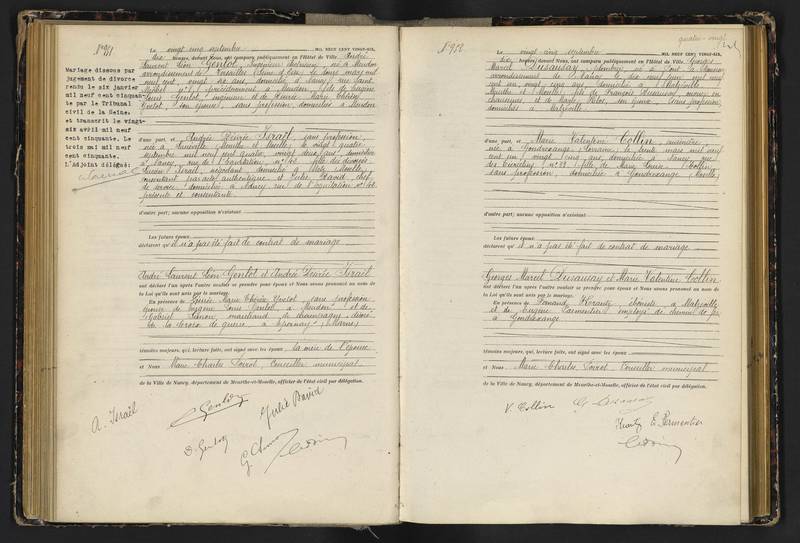 N° 951
Le vingt cinq septembre MIL NEUF CENT VINGT-SIX,
dix heures, devant Nous, ont comparu publiquement en l'Hôtel de Ville, André
Laurent Léon Genlot, ingénieur électricien, né à Meudon
arrondissement de Versailles (Seine et Oise) le douze mars mil
neuf cent, vingt six ans, domicilié à Nancy, rue Saint
Michel n° précédemment à Meudon, fils de Eugène
Louis Genlot, ingénieur et de Marie Thérèse
son épouse, sans profession, domiciliés à Meudon
Mariage dissous par
jugement de divorce
rendu le six janvier
mil neuf cent cinquan-
te par le Tribunal
civil de la Seine,
et transcrit le vingt-
six avril mil neuf
cent cinquante. Le
trois mai mil neuf
cent cinquante.
L'Adjoint délégué:
d'une part, et Andrée Désirée Israël, sans profession,
née à Lunéville, Meurthe et Moselle, le vingt quatre
septembre mil neuf cent quatre, vingt deux ans, domiciliée
à Nancy, rue de l'équitation n° 42, fille des divorcés
Israël, négociant, domicilié à Metz, Moselle,
consentant par acte authentique, et Julie David, chef
de domiciliée à Nancy, rue de l'équitation n° 42,
présente et consentante
d'autre part; aucune opposition n'existant
Les futurs époux
déclarent qu'il n'a pas été fait de contrat de mariage
André Laurent Léon Genlot et Andrée Désirée Israël
ont déclaré l'un après l'autre vouloir se prendre pour époux et Nous avons prononcé au nom de
la Loi qu'ils sont unis par le mariage.
En présence de Marie Thérèse sans profession
épouse de Eugène Louis Genlot, à Meudon et de
Gabriel Simon, marchand de champagne, décoré
de la Croix de guerre, à Epernay (Marne)
témoins majeurs, qui, lecture faite, ont signé avec les époux, la mère de l'épouse
et Nous Marie Charles Poirot, Conseiller municipal
de la Ville de Nancy, département de Meurthe-et-Moselle, officier de l'état civil par délégation.
A. Israël
Genlot
Julie David
G. Simon
quatre-vingt
N° 952
Le vingt cinq septembre MIL NEUF CENT VINGT-SIX,
dix heures, devant Nous, ont comparu publiquement en l'Hôtel de Ville, Georges
Marcel Dusaussay, plombier, né à
arrondissement de Nancy, le dix neuf juin mil neuf
cent un, vingt cinq ans, domicilié à Malzéville,
Meurthe et Moselle, fils de François Dusaussay, ouvrier en
chaussures, et de Marie son épouse, sans profession,
domiciliés à Malzéville
d'une part, et Marie Valentine Collin,
née à Gondrexange, Lorraine, le trente mars mil neuf
cent un, vingt cinq ans, domiciliée à Nancy, rue
fille de Marie Louise Collin,
sans profession, domiciliée à Gondrexange (Moselle)
d'autre part; aucune opposition n'existant
Les futurs époux
déclarent qu'il n'a pas été fait de contrat de mariage
Georges Marcel Dusaussay et Marie Valentine Collin
ont déclaré l'un après l'autre vouloir se prendre pour époux et Nous avons prononcé au nom de
la Loi qu'ils sont unis par le mariage.
En présence de Fernand ébéniste à Malzéville
et de Eugène Parmentier employé de chemin de fer
à Gondrexange
témoins majeurs, qui, lecture faite, ont signé avec les époux
et Nous Marie Charles Poirot, Conseiller municipal
de la Ville de Nancy, département de Meurthe-et-Moselle, officier de l'état civil par délégation.
V. Collin
G. Dusaussay
E. Parmentier